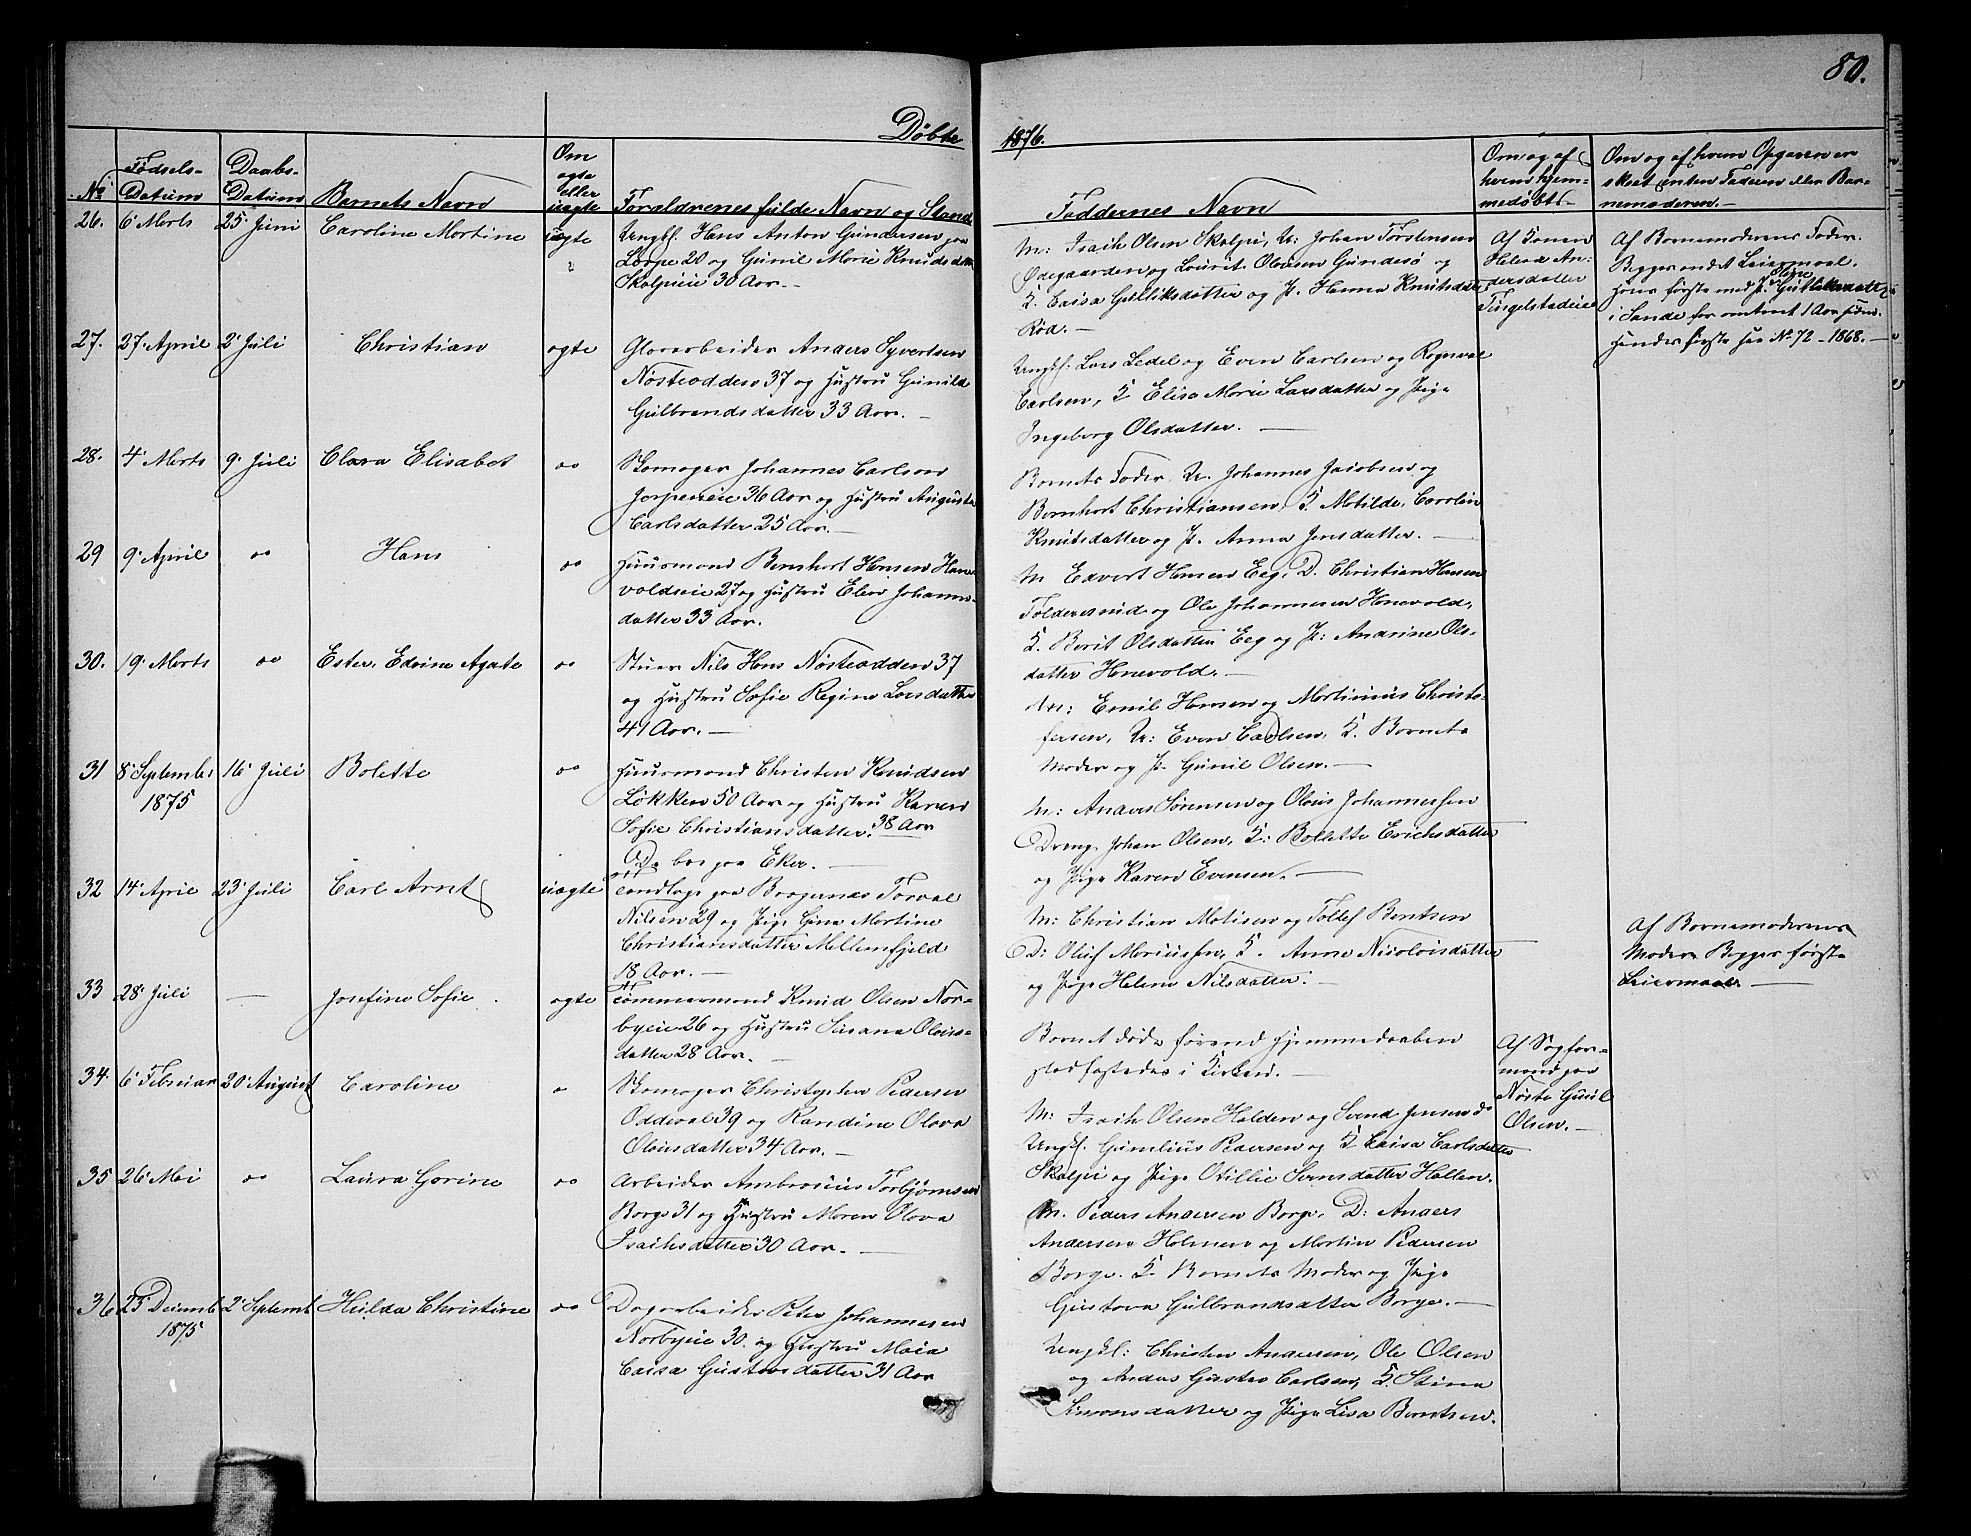 80.
Døbte 1876.
No
Fødsels-Datum
Daabs-Datum
Barnets Navn
Om ægte eller uægte
Forældrenes fulde Navn og Stand
Faddernes Navn
Om og af hvem hjemmedøbt
Om og af hvem Opgaven er skeet enten Faderen eller Barnemoderen.
26. 6 Marts 25 Juni Caroline Martine uægte
Ungkl. Hans Anton Gundersen paa
Lerpe 20 og Gunil Marie Knudsdatter
Skalpeie 30 Aar.
M: Isaik Olsen Skalpei, U: Johan Torstensen
Ødegaarden og Laurit Olavsen Gundesø og
K. Caisa Gulliksdatter og P. Hanna Knutsdatter
Rød.
Af Konen
Helene An-
dersdatter
Tingelstadeie
Af Barnemoderens Fader.
Begges andet Leiermaal.
Hans første med P. Oline Gulliksdatter
i Sande for omtrent 1 Aar siden.
Hendes første see No 72 - 1868.
27. 27 April 2 Juli Christian ægte
Glasarbeider Anders Syvertsen
Nøsteodden 37 og Hustru Gunild
Gulbrandsdatter 33 Aar.
Ungkl: Lars Ledel og Even Carlsen og Rognval
Carlsen, K Elise Marie Larsdatter og Pige
Ingeborg Olsdatter.
28. 4 Marts 9 Juli Clara Elisabet oo
Skomager Johannes Carlson
Jarpeneie 36 Aar og Hustru Augusta
Carlsdatter 25 Aar.
Barnets Fader, U. Johannes Jacobsen og
Bernhart Christiansen, K. Matilde Carolin
Knutsdatter og P. Anna Jensdatter.
29 9 April oo Hans oo
Huusmand Bernhart Hansen Hane-
voldseie 27 og Hustru Elen Johannes-
datter 33 Aar.
M Edvart Hansen Eeg, D. Christian Hansen
og Ole Johannesen Hanevold,
K. Berit Olsdatter Eeg og P: Andrine Ols-
datter Hanevold.
30. 19 Marts oo Ester Edvine Agate oo
Stuer Nils Hans Nøsteodden 37
og Hustru Sofie Regine Larsdatter
41 Aar.
M: Emil Hansen og Martinius Christo-
fersen, U: Even Carlsen, K. Barnets
Moder og P. Gunil Olsen.
31 8 September 1875 16 Juli Bolette oo
Huusmand Christen Knudsen
Løkken 50 Aar og Hustru Karen
Sofie Christiansdatter 38 Aar
De bor paa Eker.
M: Anders Sørensen og Olaus Johannessen
Dreng Johan Olsen, K: Bollette Erichsdatter
og Pige Karen Evensen.
32 14 April 23 Juli Carl Arnt uægte
paa Bragernæs Torval
Nilsen 29 og Pige Gina Martine
Christiansdatter Mellemfjeld
18 Aar.
M: Christian Matisen og Tollef Berntsen
D: Oluf Mariussen, K. Anne Nicolaisdatter
og Pige Helene Nilsdatter.
Af Barnemoderens
Moder. Begges første
Leiermaal.
33 28 Juli — Josefine Sofie ægte
Tømmermand Knud Olsen Nor-
byeie 26 og Hustru Susana Olaus-
datter 28 Aar.
Barnet døde førend Hjemmedaaben
stadfæstedes i Kirken.
Af Sogfor-
mand paa
Nøste Gunil
Olsen.
34. 6 Februar 20 August Caroline o
Skomager Christopher Pedersen
Oddeval 39 og Randine Olava
Olausdatter 34 Aar.
M: Isaik Olsen Halden og Svend Jensen do
Ungkl. Gunelius Pedersen og K Caisa Carlsdatter
Skalpei og Pige Otillie Svensdatter Hallen.
35 26 Mai oo Laura Gorine oo
Arbeider Ambrosius Torbjørnsen
Borge 31 og Hustru Maren Olava
Isaiksdatter 30 Aar.
M. Peder Andersen Borge, D: Anders
Andersen Holmen og Martin Pedersen
Borge. K. Barnets Moder og Pige
Gustava Gulbrandsdatter Borge.
36 23 Decemb. 1875 2 Septemb. Hulda Christine oo
Dagarbeider Peter Johannesen
Norbyeie 30 og Hustru Maia
Caisa Gustavsdatter 31 Aar
Ungkl: Christen Andersen, Ole Olsen
og Anders Gustav Carlsen, K. Stina
Simonsdatter og Pige Lisa Berntsen.